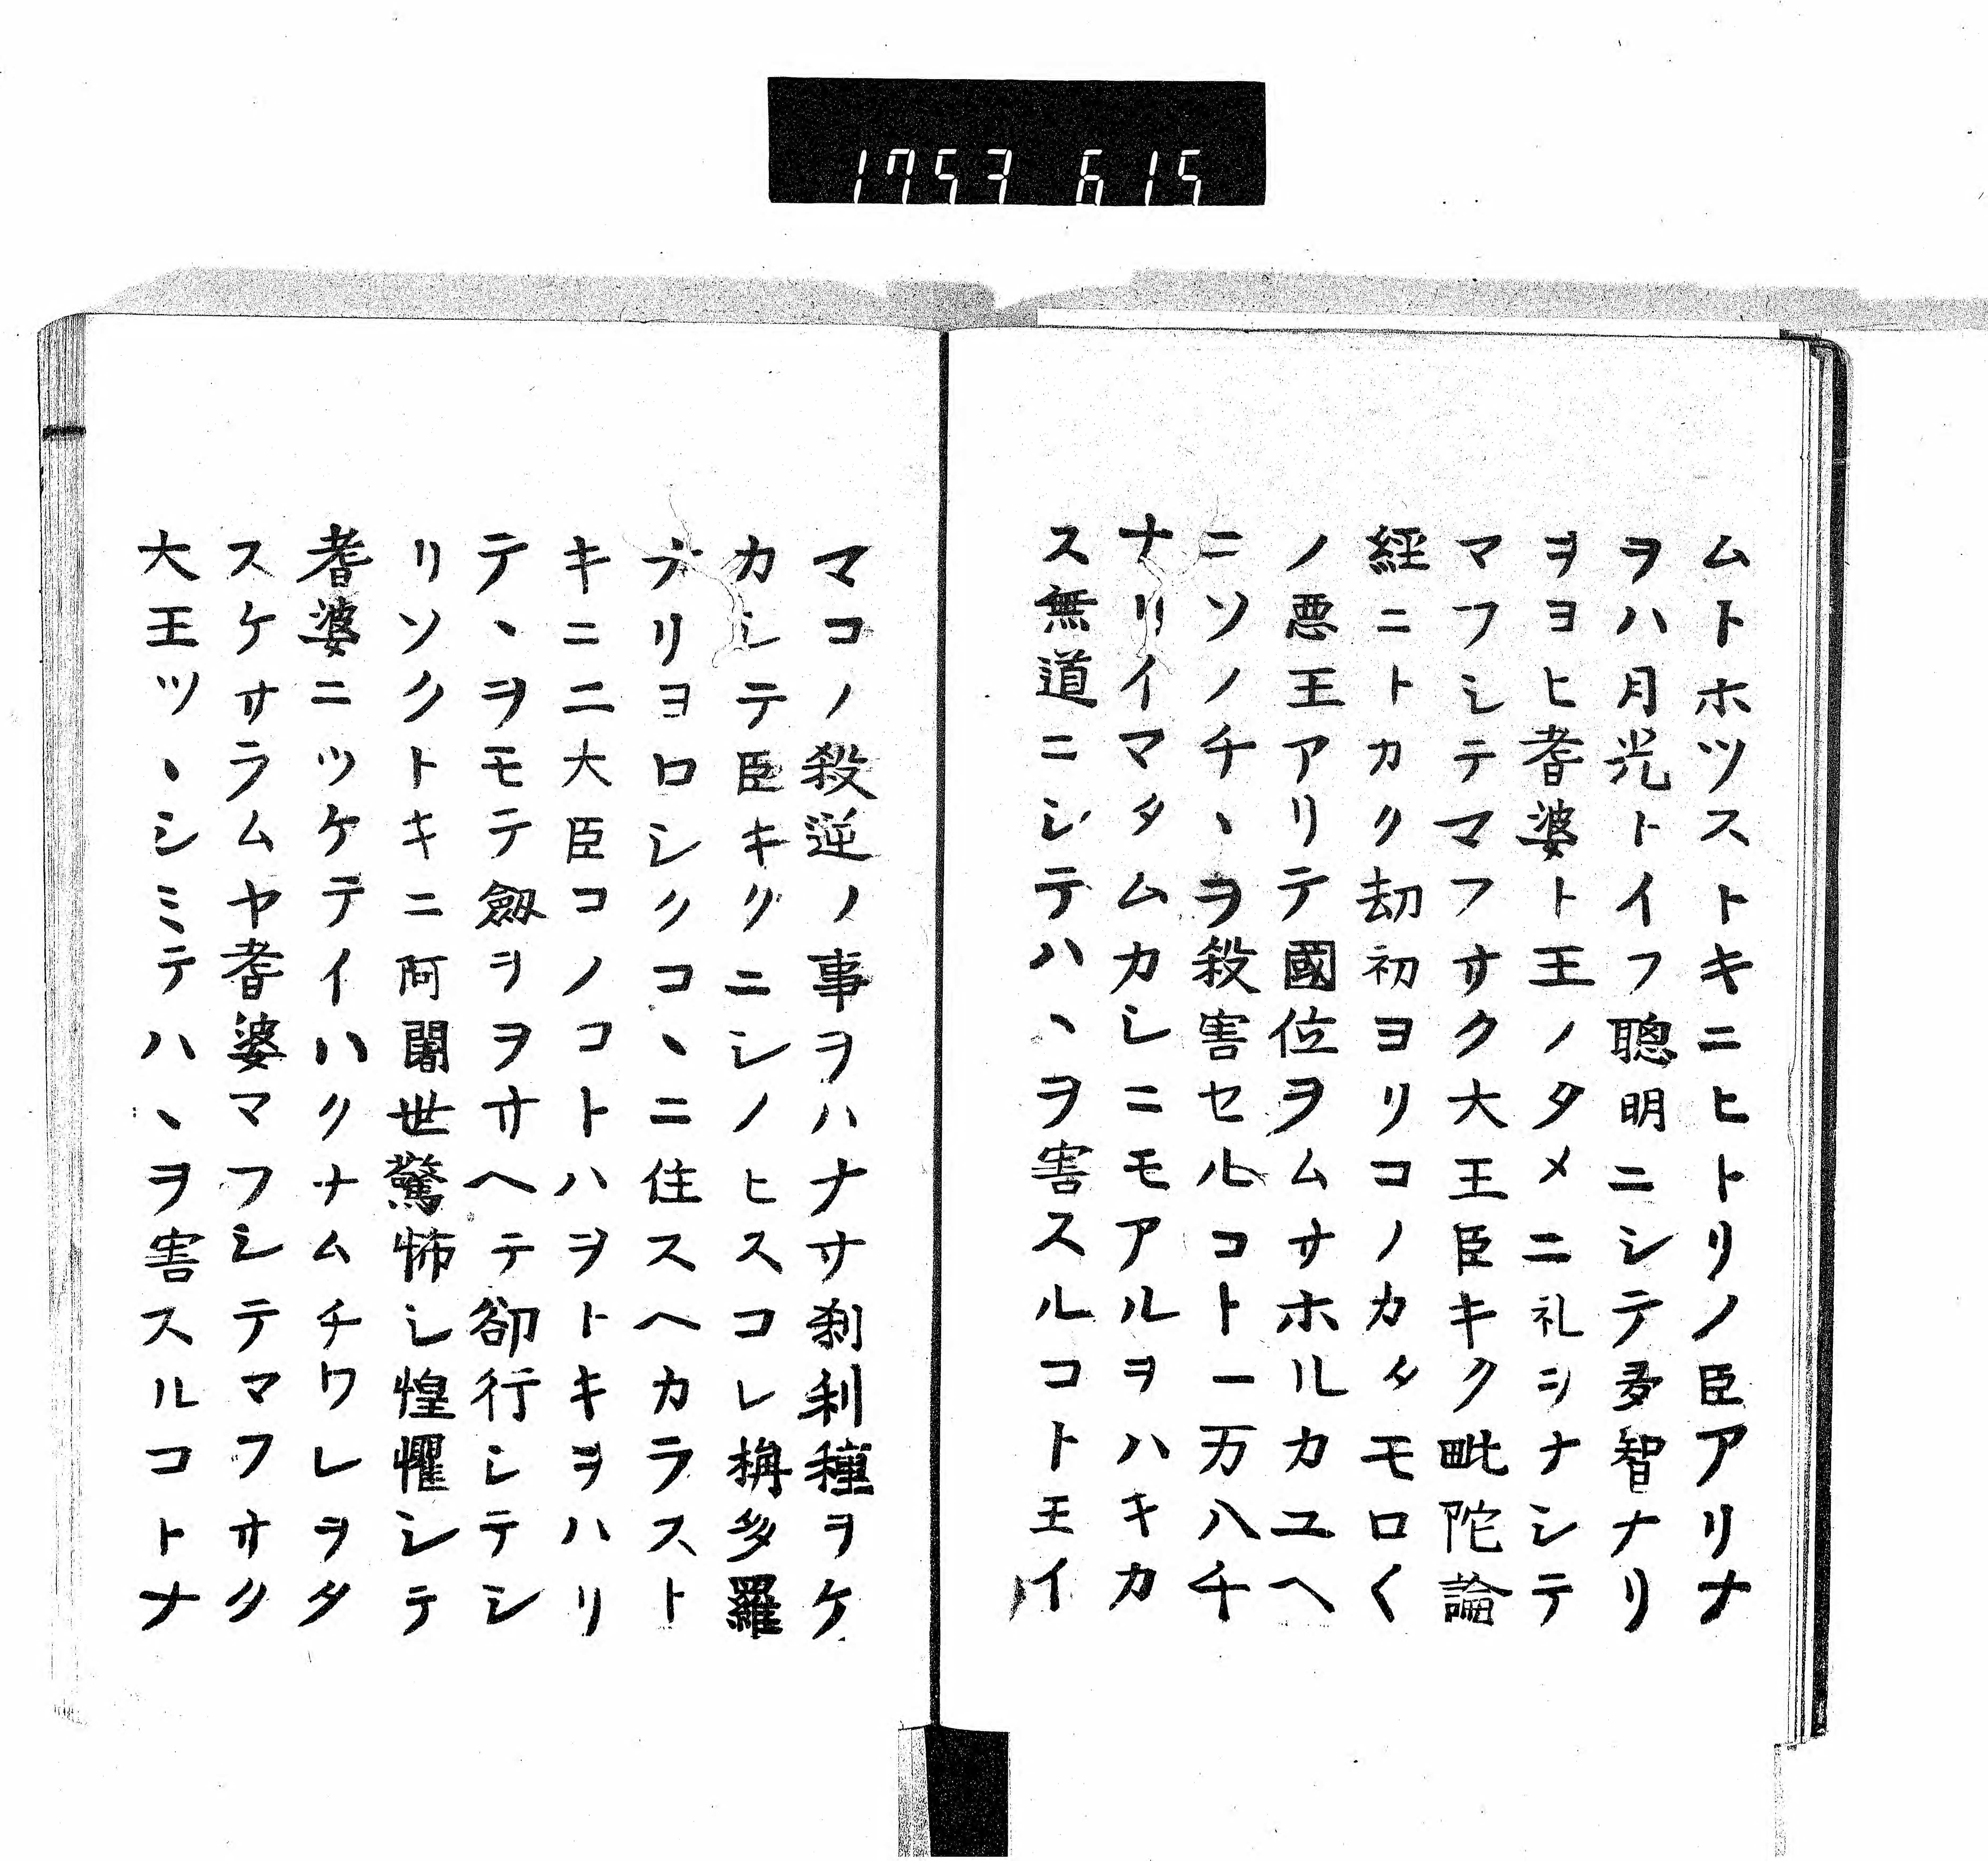 1753 615
ムトホツストキニヒトリノ臣アリナ
ヲハ月光トイフ聰明ニシテ多智ナリ
ヲヨヒ耆婆ト王ノタメニ礼シナシテ
マフシテマフサク大王臣キク毗陀論
經ニトカク劫初ヨリコノカタモロ〱
ノ悪王アリテ國位ヲムサホルカユヘ
ニソノチヽヲ殺害セルコト一万八千
ナリイマタムカシニモアルヲハキカ
ス無道ニシテハヽヲ害スルコト王イ
マコノ殺逆ノ事ヲハナサ刹利種ヲケ
カシテ臣キクニシノヒスコレ栴多羅
ナリヨロシクコヽニ住スヘカラスト
キニ二大臣コノコトハヲトキヲハリ
テヽヲモテ劔ヲヲサヘテ卻行シテシ
リソクトキニ阿闍世驚怖シ惶懼シテ
耆婆ニツケテイハクナムチワレヲタ
スケサラムヤ耆婆マフシテマフサク
大王ツヽシミテハヽヲ害スルコトナ